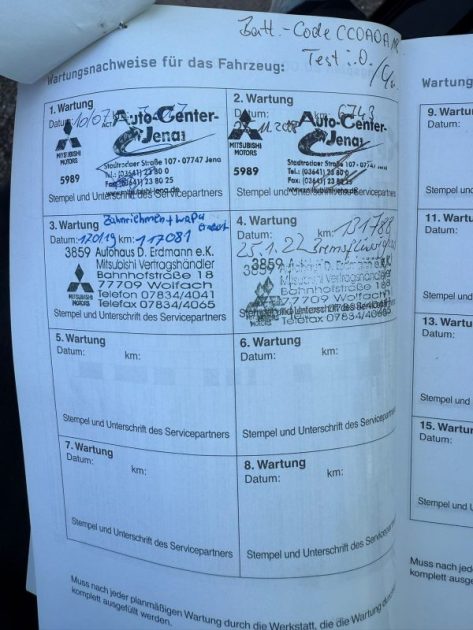 Batt.-Code CCOAOA
Test i.O.
Wartungsnachweise für das Fahrzeug:
1. Wartung
Datum: 10/07
MITSUBISHI
MOTORS
5989
Auto-Center-
Jena
Stadtrodaer Straße 107 · 07747 Jena
Tel.: (03641) 23 80 0
Fax: (03641) 23 80 25
Stempel und Unterschrift des Servicepartners
2. Wartung
Datum:
MITSUBISHI
MOTORS
5989
Auto-Center-
Jena
Stadtrodaer Straße 107 · 07747 Jena
Tel.: (03641) 23 80 0
Fax: (03641) 23 80 25
Stempel und Unterschrift des Servicepartners
3. Wartung Zahnriemen + WaPu
Datum: km: 117081
3859 Autohaus D. Erdmann e.K.
Mitsubishi Vertragshändler
Bahnhofstraße 18
77709 Wolfach
Telefon 07834/4040
Telefax 07834/4065
MITSUBISHI
MOTORS
Stempel und Unterschrift des Servicepartners
4. Wartung
Datum: km: 131788
25.1.22
Bahnhofstraße 18
77709 Wolfach
Telefax 07834/4065
Stempel und Unterschrift des Servicepartners
5. Wartung
Datum: km:
Stempel und Unterschrift des Servicepartners
6. Wartung
Datum: km:
Stempel und Unterschrift des Servicepartners
7. Wartung
Datum: km:
Stempel und Unterschrift des Servicepartners
8. Wartung
Datum: km:
Stempel und Unterschrift des Servicepartners
Muss nach jeder planmäßigen Wartung durch die Werkstatt, die die Wartung
komplett ausgefüllt werden.
9. Wartung
Datum:
Stempel und
11. Wartu
Datum:
Stempel und
13. Wartu
Datum:
Stempel und
15. Wartu
Datum:
Stempel und
Muss nach je
komplett aus